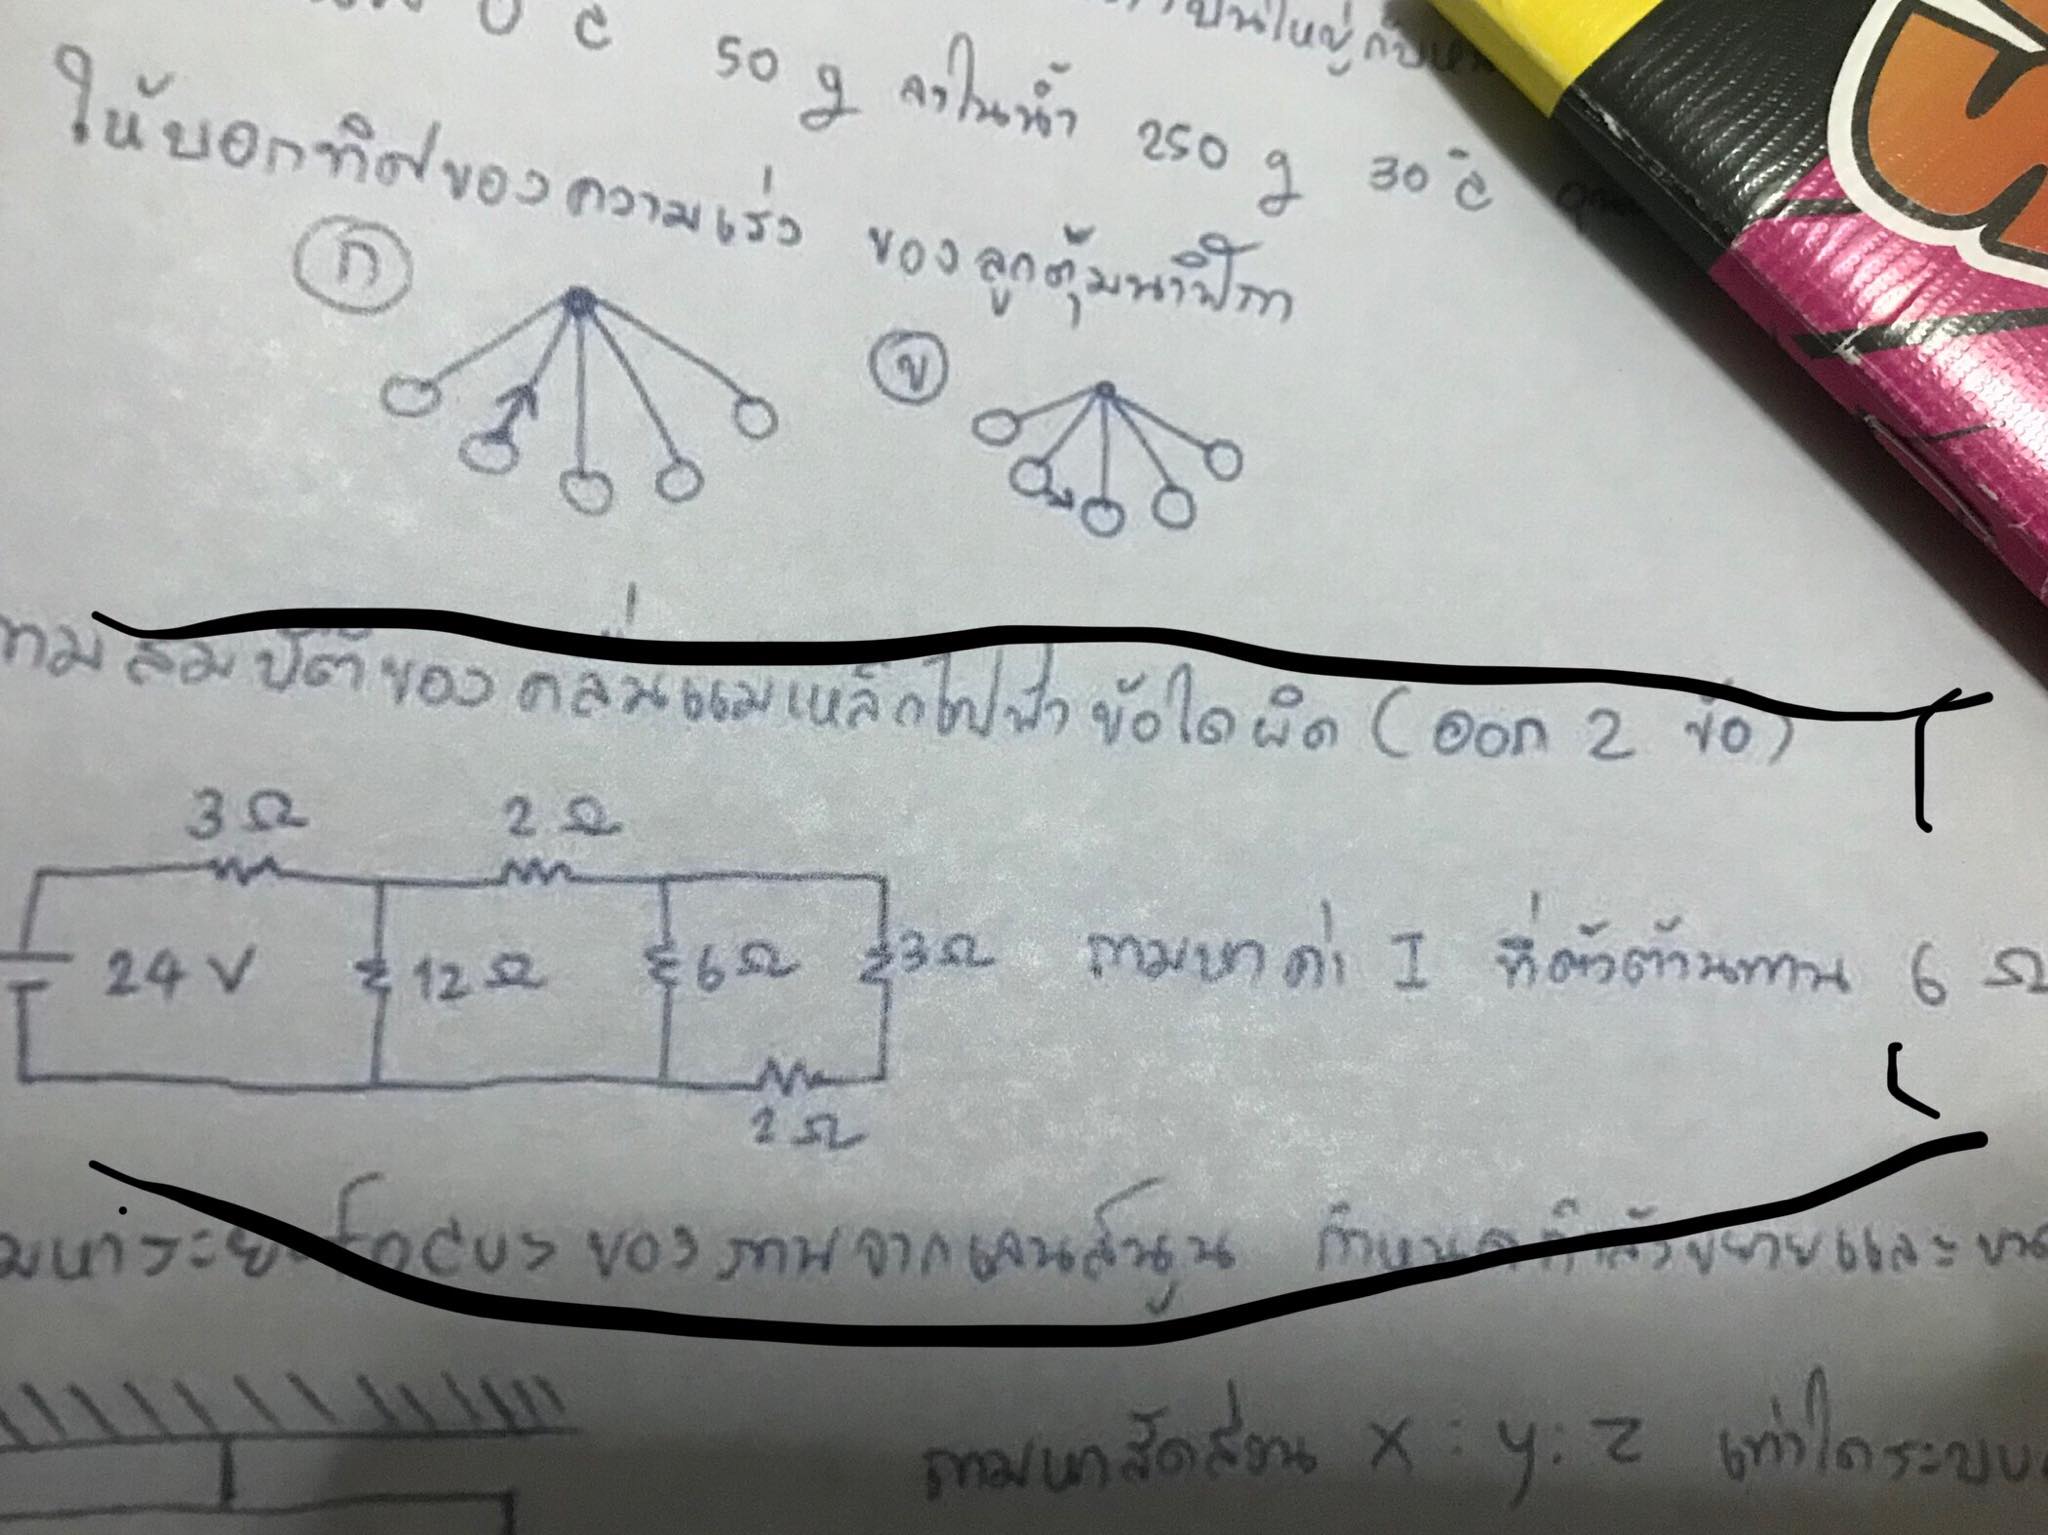 0 °c 50 g ลงในน้ำ 250 g 30 °c
ให้บอกทิศของความเร่ง ของลูกตุ้มนาฬิกา
ก
ข
ถามสมบัติของคลื่นแม่เหล็กไฟฟ้า ข้อใดผิด (ออก 2 ข้อ)
3 Ω 2 Ω
24 V 12 Ω 6 Ω 3 Ω ถามหาค่า I ที่ตัวต้านทาน 6 Ω
2 Ω
focus ของภาพจากเลนส์นูน กำหนดกำลังขยายและ
ถามหาสัดส่วน x : y : z เท่าใดระบบ